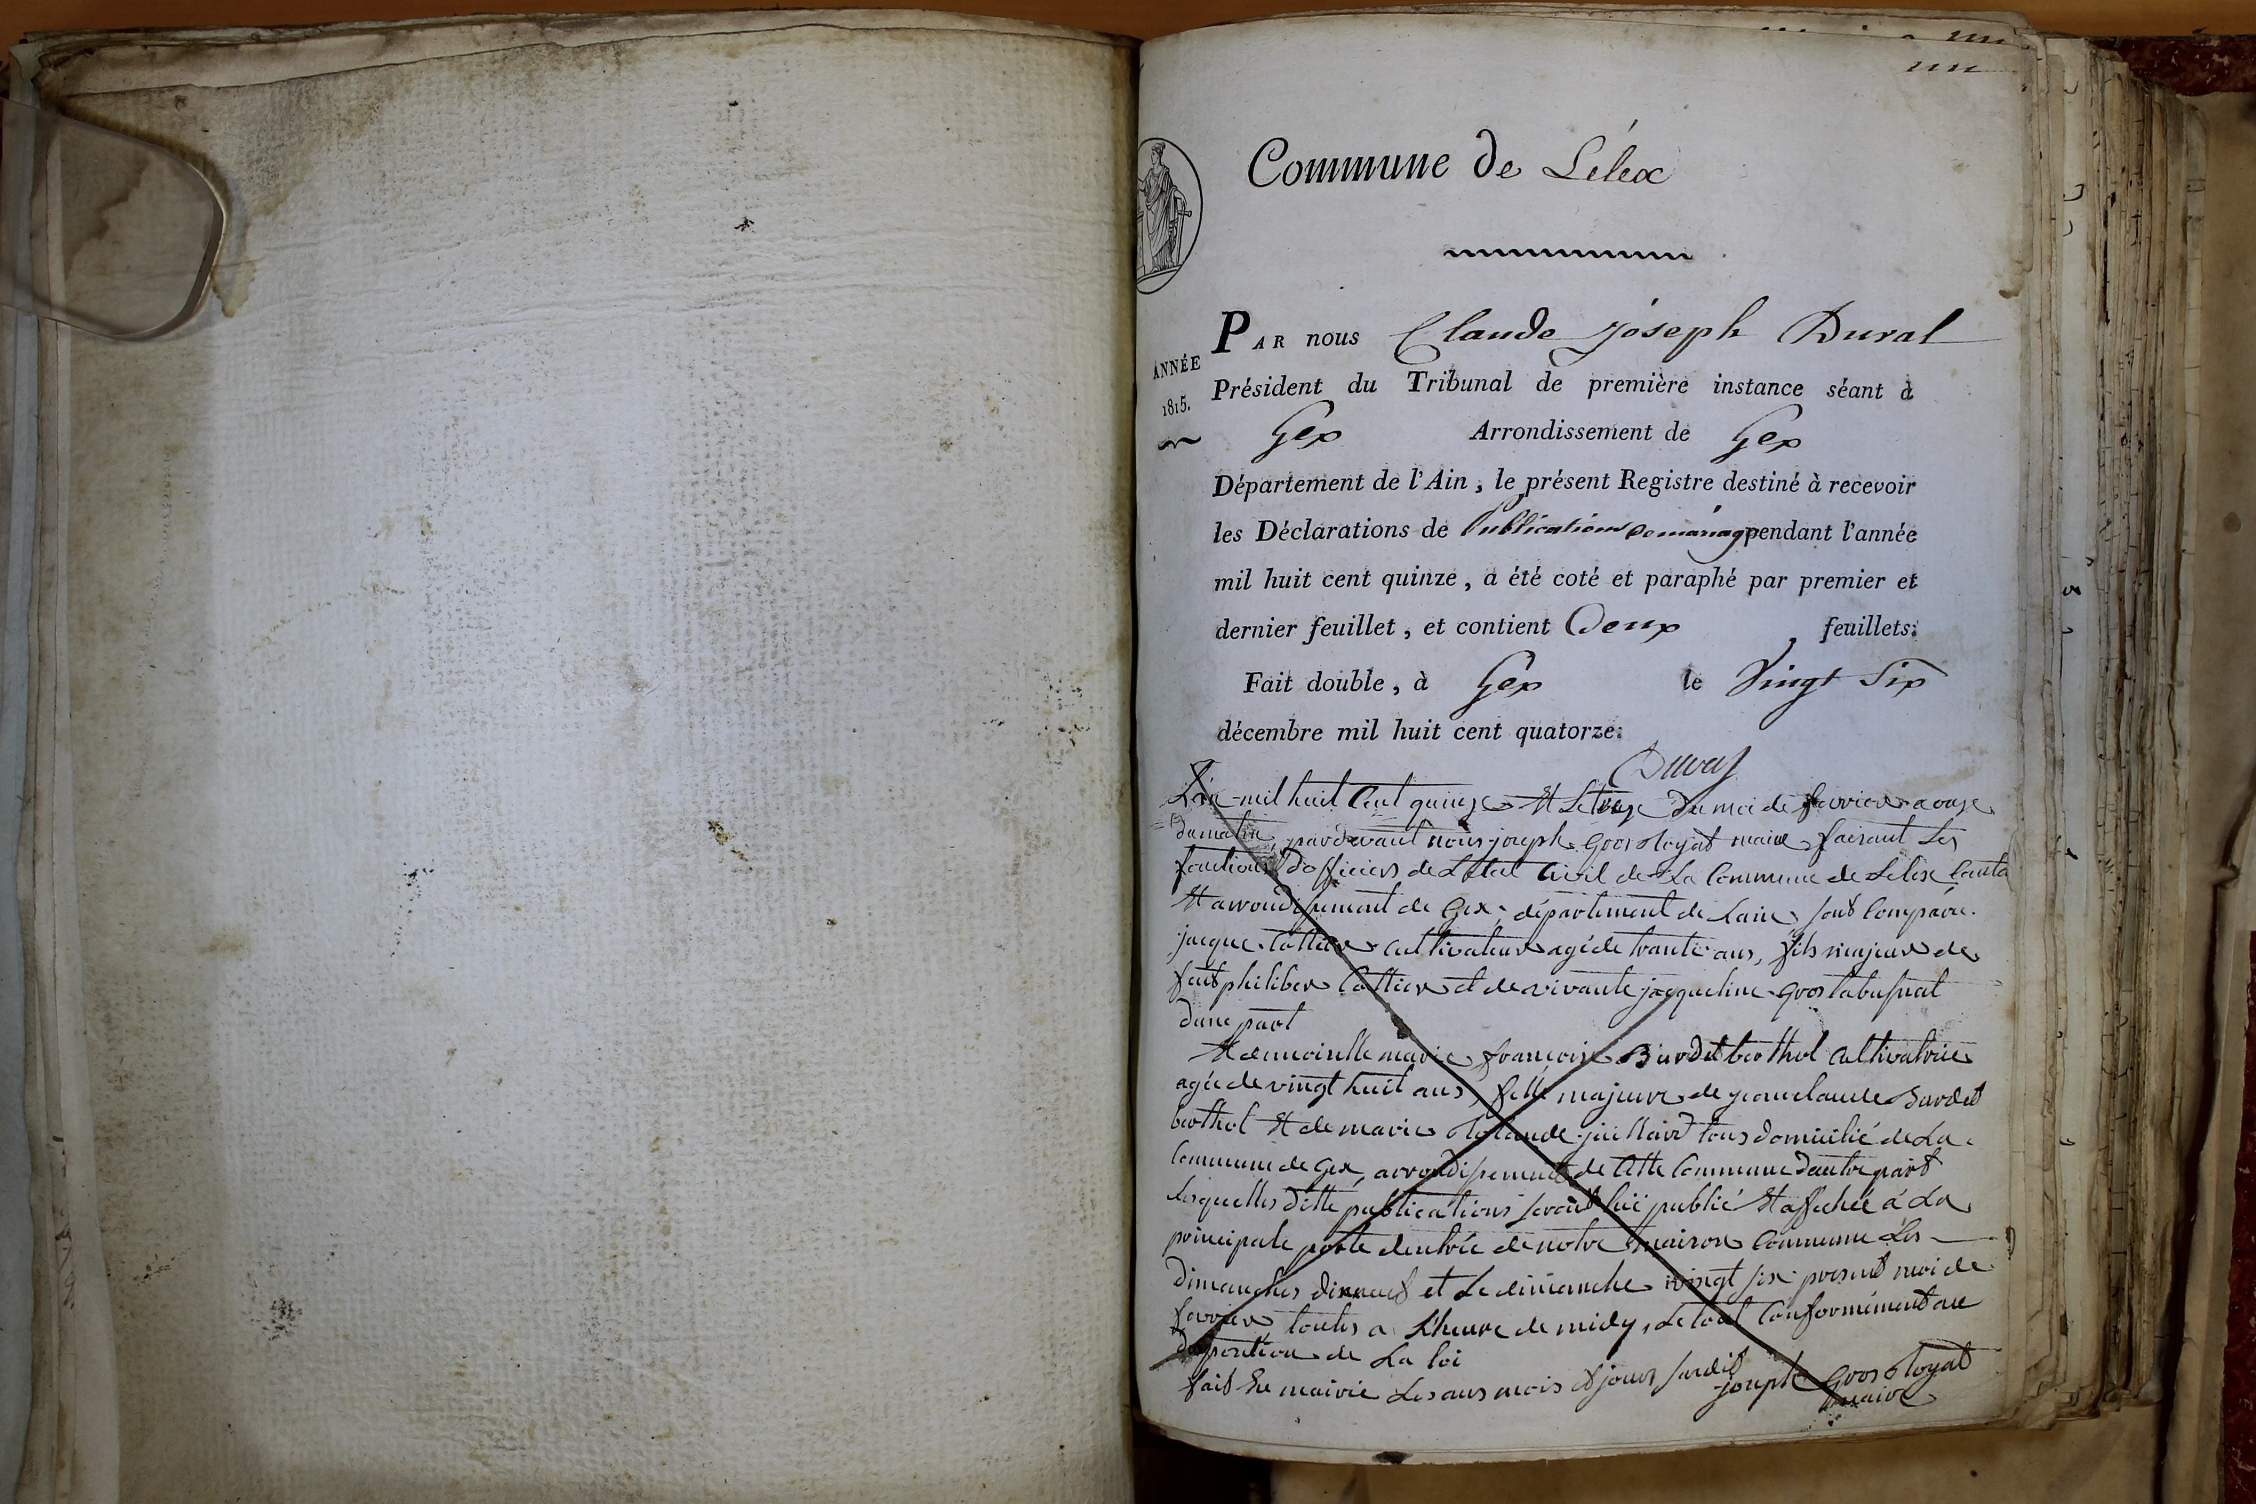 Commune de Lélex
ANNÉE
1815.
PAR nous Claude joseph Duval
Président du Tribunal de première instance séant à
Gex Arrondissement de Gex
Département de l'Ain, le présent Registre destiné à recevoir
les Déclarations de Publications de mariag pendant l'année
mil huit cent quinze, a été coté et paraphé par premier et
dernier feuillet, et contient Deux feuillets.
Fait double, à Gex le Vingt Six
décembre mil huit cent quatorze.
Duval
L'an mil huit Cent quinze Et le du moi de fevrier a onze
du matin, pardevant nous joseph Gros maire faisant Les
fonctions d'officiers de Letat Civil de La Commune de Lelex Canto
Et arrondissement de Gex, département de Lain, sont Comparu
jacque Cottier cultivateur agé de trante ans, fils majeur de
feut philiber Cottier et de vivante jacqueline Gros
dune part
Et demoiselle marie francoise Burdet berthol Cultivatrice
agée de vingt huit ans, fille majeure de jean claude Burdet
berthol Et de marie tous domicilié de La
Commune de Gex, arrondissement de Cette Commune dautre part
lesquelles ditte publications seront publié Et affichée a La
principale porte dentrée de notre maison Commune Les
dimanches et Le dimanche vingt six present moi de
fevrier toutes a L'heure de midy, Le tout Conformement au
disposition de La loi
fait En mairie Les ans mois et jour susdit
joseph Gros
maire